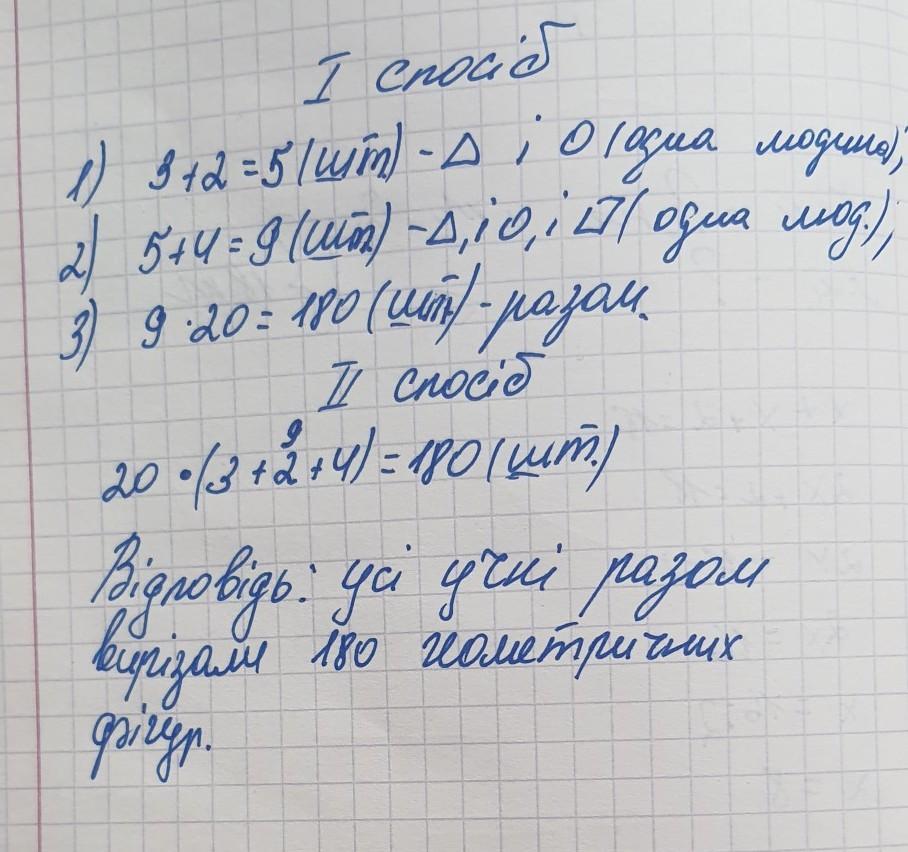 I спосіб
1) 3+2=5 (шт.) - △ і О (одна людина);
2) 5+4=9 (шт.) - △, і О, і □ (одна люд.);
3) 9·20=180 (шт.) - разом.
II спосіб
9
20·(3+2+4)=180 (шт.)
Відповідь: усі учні разом
вирізали 180 геометричних
фігур.